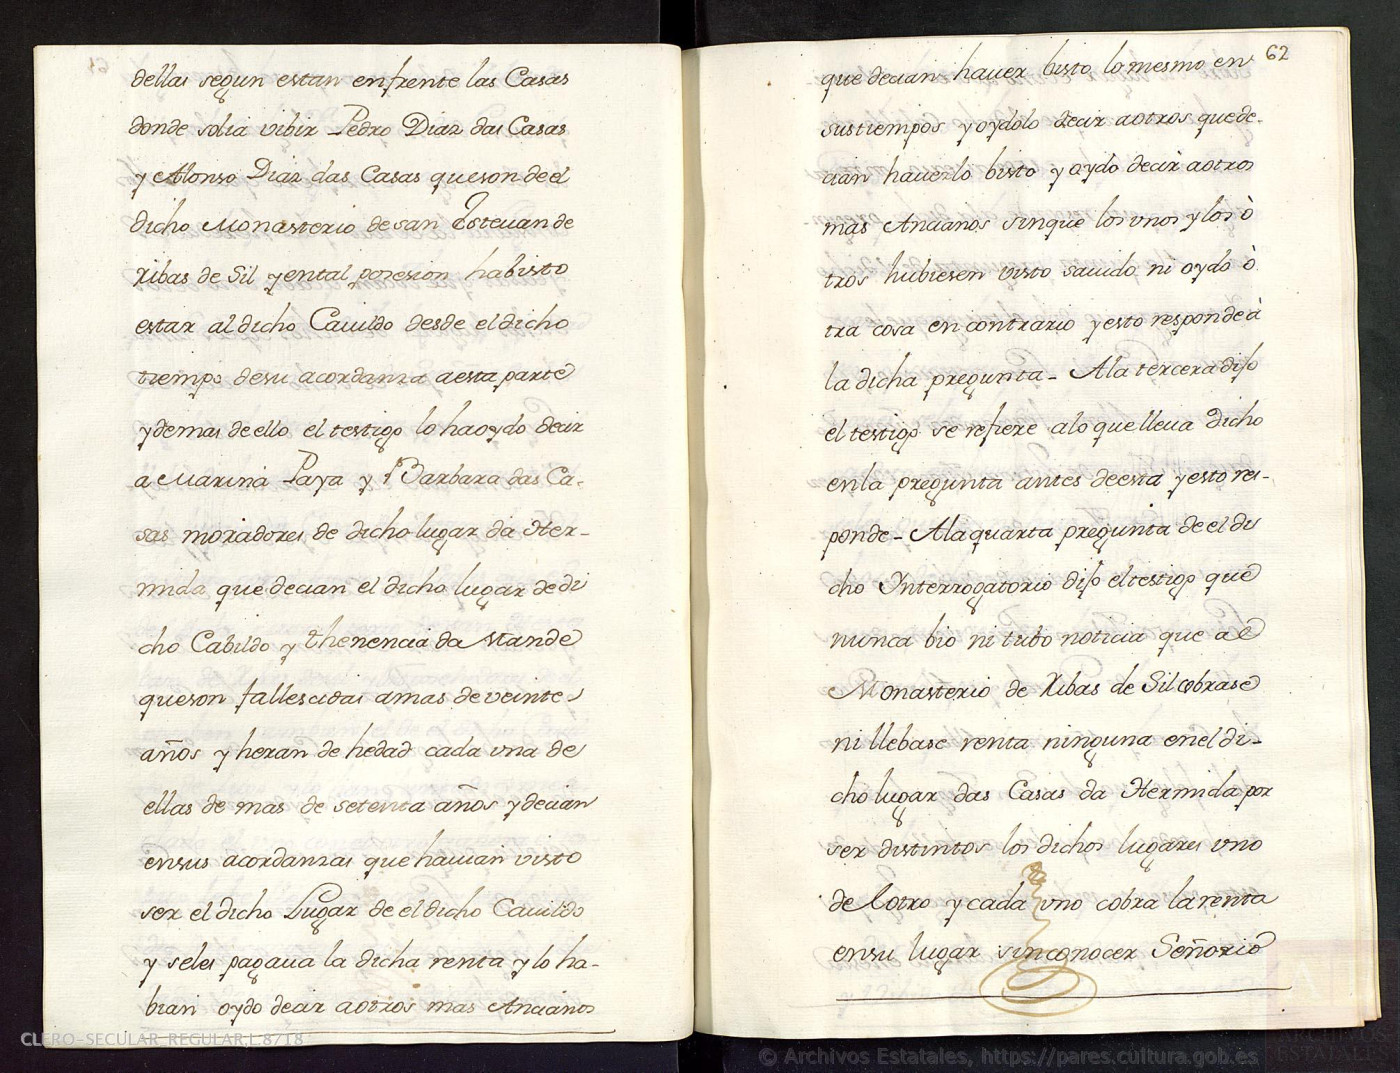 dellas segun estan enfrente las Casas
donde solia vibir Pedro Diaz das Casas
y Alonso Diaz das Casas que son de el
dicho Monasterio de san Estevan de
Ribas de Sil y en tal posesion ha bisto
estar al dicho Cavildo desde el dicho
tiempo de su acordanza a esta parte
y demas de ello el testigo lo ha oydo decir
a Marina Paya y Barbara das Ca-
sas moradores de dicho lugar da Her-
mida que decian el dicho lugar de di
cho Cabildo y thenencia da Mande
que son fallescidas a mas de veinte
años y heran de hedad cada una de
ellas de mas de setenta años y decian
en sus acordanzas que havian visto
ser el dicho Lugar de el dicho Cavildo
y se les pagava la dicha renta y lo ha-
bian oydo decir a otros mas Ancianos
62
que decian haver bisto lo mesmo en
sus tiempos y oydolo decir a otros que de-
cian haverlo bisto y oydo decir a otros
mas Ancianos sin que los unos y los o
tros hubiesen visto savido ni oydo o
tra cosa en contrario y esto responde a
la dicha pregunta - A la tercera dijo
el testigo se refiere a lo que lleva dicho
en la pregunta antes de esta y esto res-
ponde - A la quarta pregunta de el di
cho Interrogatorio dijo el testigo que
nunca bio ni tubo noticia que a el
Monasterio de Ribas de Sil cobrase
ni llebase renta ninguna en el di-
cho lugar das Casas da Hermida por
ser distintos los dichos lugares uno
de lotro y cada uno cobra la renta
en su lugar sin conocer Señorio
CLERO-SECULAR_REGULAR,L.8718
© Archivos Estatales, https://pares.cultura.gob.es
ARCHIVOS
ESTATALES